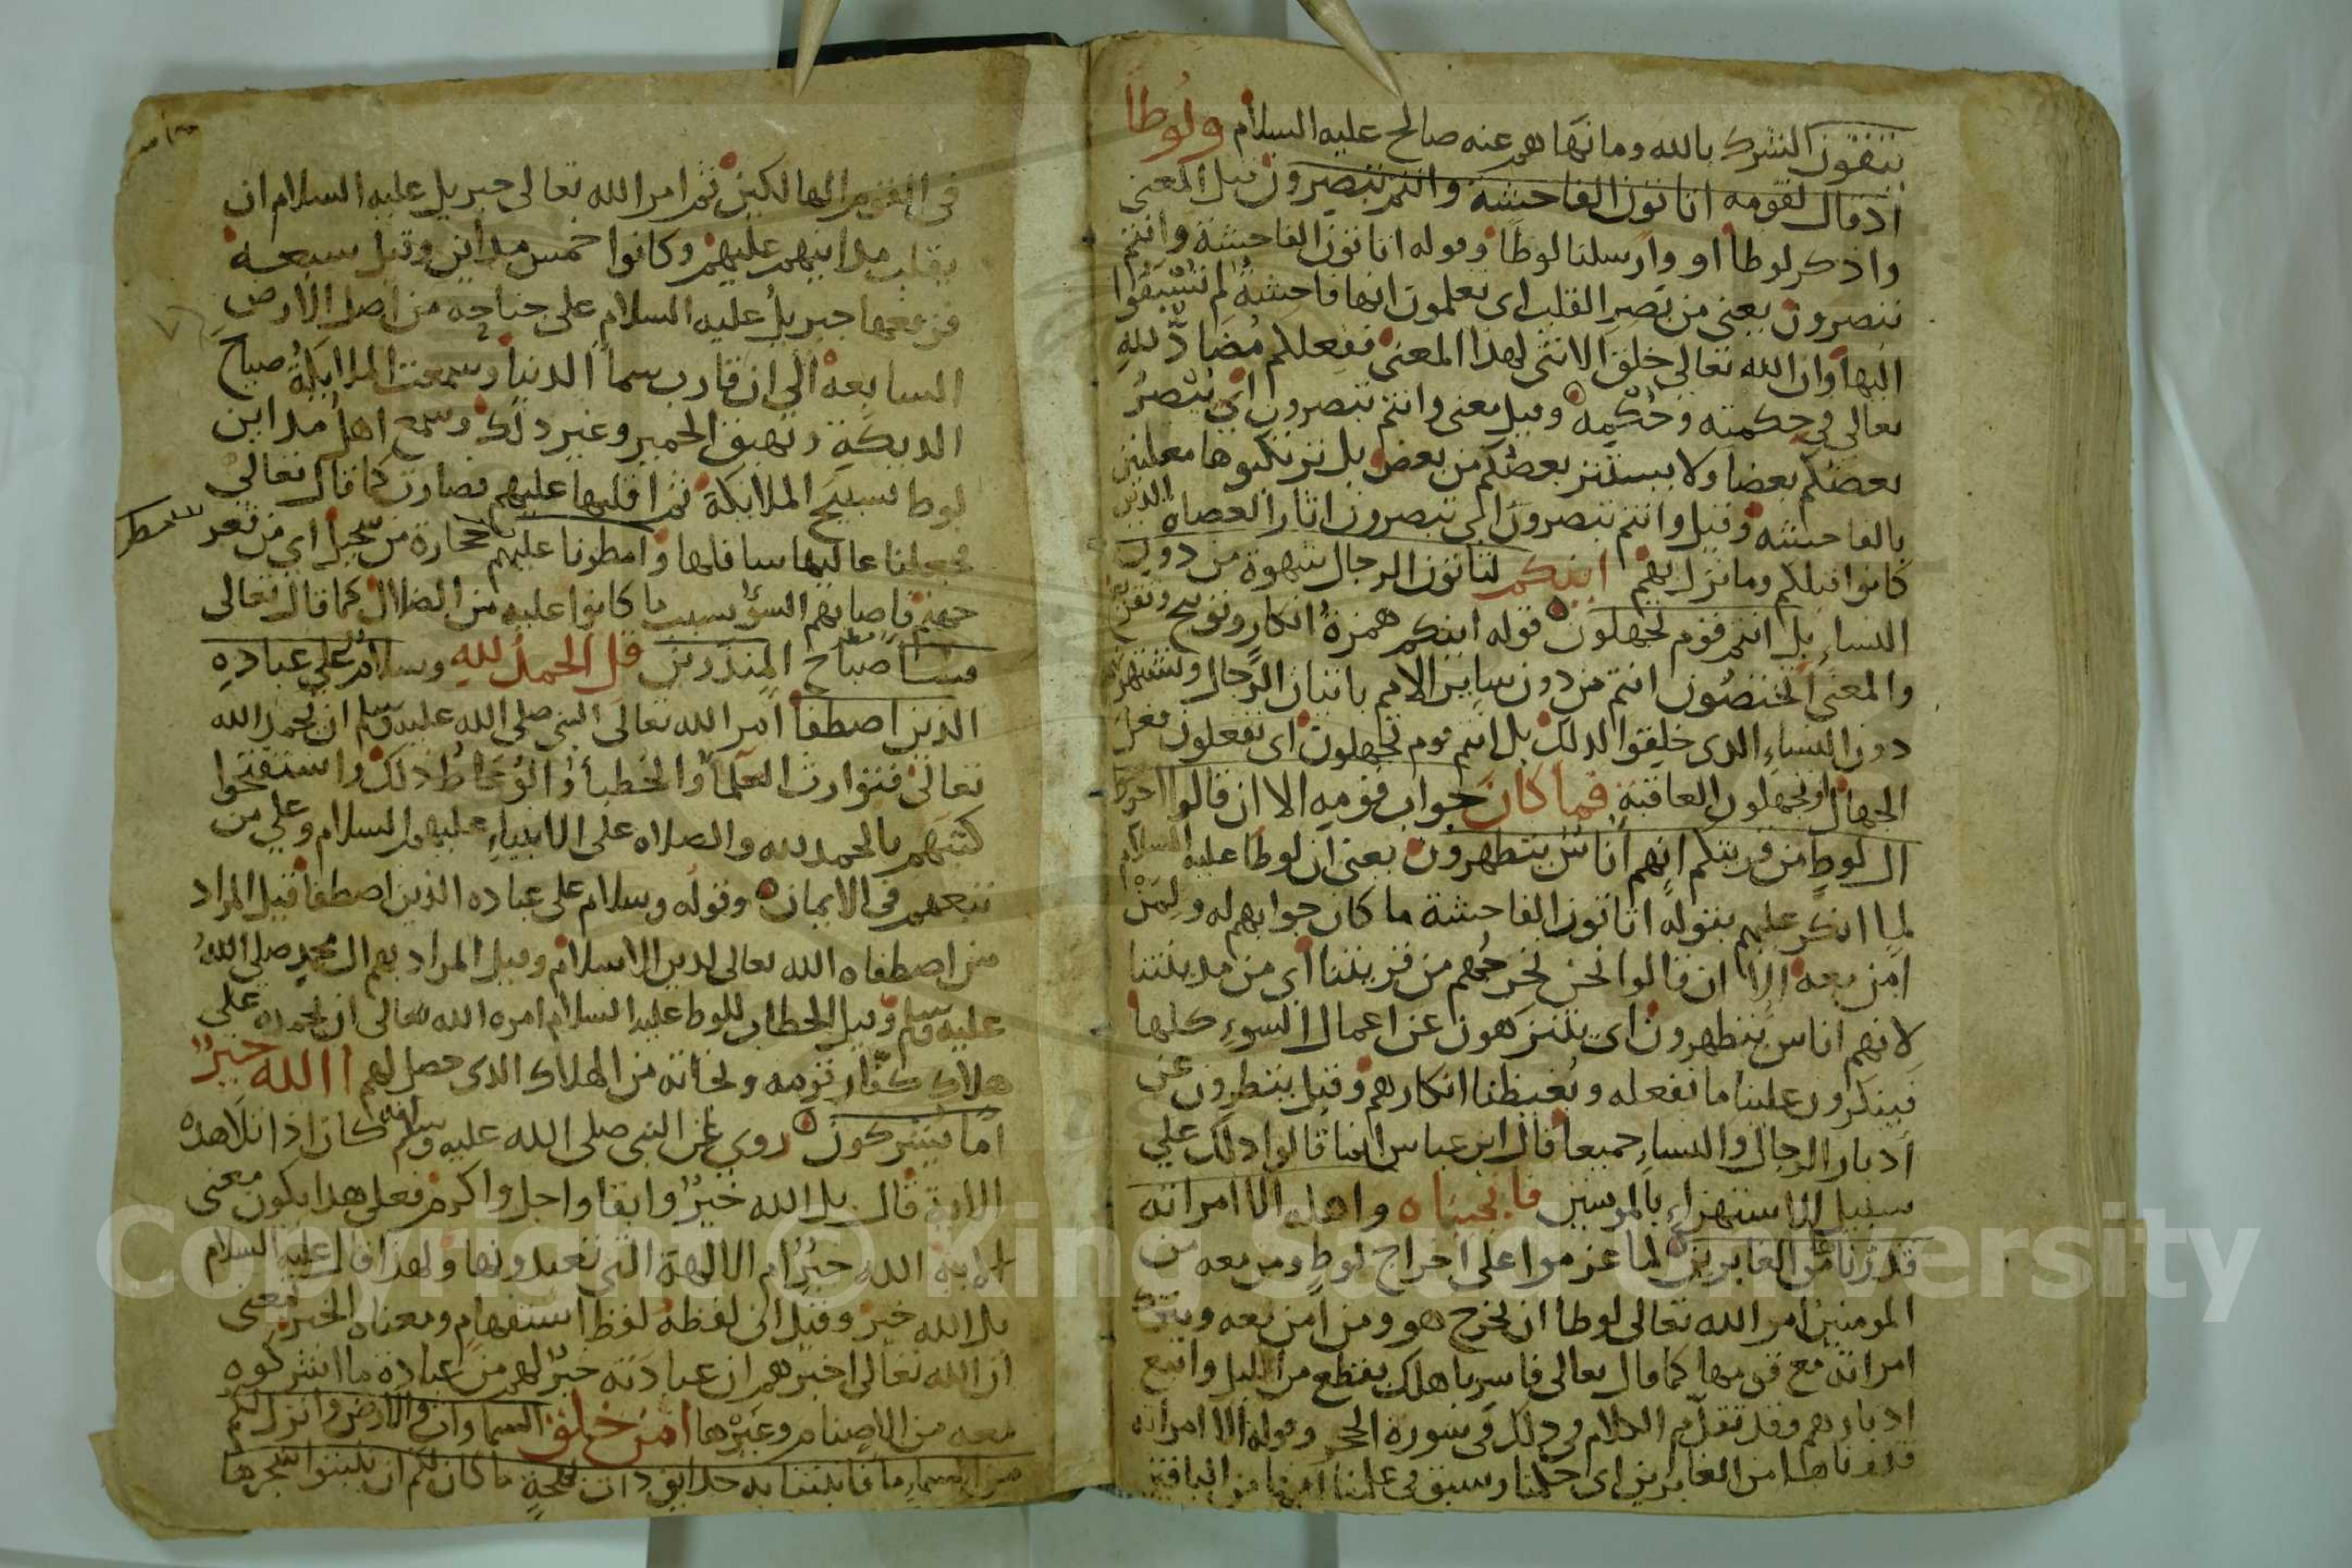 يتقون الشرك بالله وما نهاهم عنه صالح عليه السلام ولوطا
اذ قال لقومه اتاتون الفاحشة وانتم تبصرون قيل المعنى
واذكر لوطا او وارسلنا لوطا وقوله اتاتون الفاحشة وانتم
تبصرون يعنى من بصر القلب اى تعلمون انها فاحشة لم تسبقوا
اليها وان الله تعالى خلق الانثى لهذا المعنى ففعلكم مضاد لله
تعالي في حكمته وحكمه وقيل معنى وانتم تبصرون اى يبصر
بعضكم بعضا ولا يستتر بعضكم من بعض بل ترتكبوها معلنين
بالفاحشه وقيل وانتم تبصرون اى تبصرون اثار العصاه الذين
كانوا قبلكم وما نزل بهم اينكم لتاتون الرجال شهوة من دون
النساء بل انتم قوم تجهلون قوله اينكم همزة انكار وتوبيخ وتقريع
والمعنى اتختصون انتم من دون ساير الامم باتيان الرجال وشهوتهم
دون النساء الذى خلقوا لذلك بل انتم قوم تجهلون اى تفعلون فعل
الجهال او تجهلون العاقبة فما كان جواب قومه الا ان قالوا اخرجوا
ال لوط من قريتكم انهم اناس يتطهرون يعنى ان لوطا عليه السلام
لما انكر عليهم بقوله اتاتون الفاحشة ما كان جوابهم له ولمن
امن معه الا ان قالوا نحن نخرجهم من قريتنا اى من مدينتنا
لانهم اناس يتطهرون اى يتنزهون عن اعمال السوء كلها
فينكرون علينا ما نفعله ويغيظنا انكارهم وقيل يتطهرون عن
ادبار الرجال والنساء جميعا قال ابن عباس انما قالوا ذلك علي
سبيل الاستهزاء بالمومنين فانجيناه واهله الا امراته
قدرناها من الغابرين لما عزموا على اخراج لوط ومن معه من
المومنين امر الله تعالى لوطا ان يخرج هو ومن امن معه ويترك
امراته مع قومها كما قال تعالى فاسر باهلك بقطع من الليل واتبع
ادبارهم وقد تقدم الكلام في ذلك في سورة الحجر وقوله الا امراته
قدرناها من الغابرين اى حكمنا وسبق في علمنا انها من الباقين
فى القوم الهالكين ثم امر الله تعالى جبريل عليه السلام ان
يقلب مداينهم عليهم وكانوا خمس مداين وقيل سبعة
فرفعها جبريل عليه السلام على جناحه من اصل الارض
السابعة الي ان قارب سما الدنيا وسمعت الملايكة صياح
الديكة ونهيق الحمير وغير ذلك وسمع اهل مداين
لوط تسبيح الملايكة ثم اقلبها عليهم فصارت كما قال تعالى
فجعلنا عاليها سافلها وامطرنا عليهم حجارة من سجيل اى من قعر
جهنم فاصابهم السوء بسبب ما كانوا عليه من الضلال كما قال تعالى
مطر
فساء صباح المنذرين قل الحمد لله وسلام على عباده
الذين اصطفا امر الله تعالى النبي صلى الله عليه وسلم ان يحمد الله
تعالى فتوارث العلما والخطبا والوعاظ ذلك واستفتحوا
كتبهم بالحمد لله والصلاه على الانبياء عليهم السلام وعلي من
تبعهم فى الايمان وقوله وسلام على عباده الذين اصطفا قيل المراد
من اصطفاه الله تعالى لدين الاسلام وقيل المراد بهم ال محمد صلى الله
عليه وسلم وقيل الخطاب للوط عليه السلام امره الله تعالى ان يحمده على
هلاك كفار قومه ونجاته من الهلاك الذى حصل لهم االله خير
اما يشركون روي عن النبي صلى الله عليه وسلم انه كان اذا تلا هذه
الاية قال بل الله خير وابقا واجل واكرم فعلى هذا يكون معنى
الاية الله خير ام الالهة التى تعبدونها ولهذا قال عليه السلام
بل الله خير وقيل ان لفظه لفظ استفهام ومعناه الخبر بمعنى
ان الله تعالى اخبرهم ان عبادته خير لهم من عبادة ما اشركوه
معه من الاصنام وغيرها امن خلق السماوات والارض وانزل لكم
من السماء ما فانبتنا به حدايق ذات بهجة ما كان لكم ان تنبتوا شجرها
Copyright © King Saud University